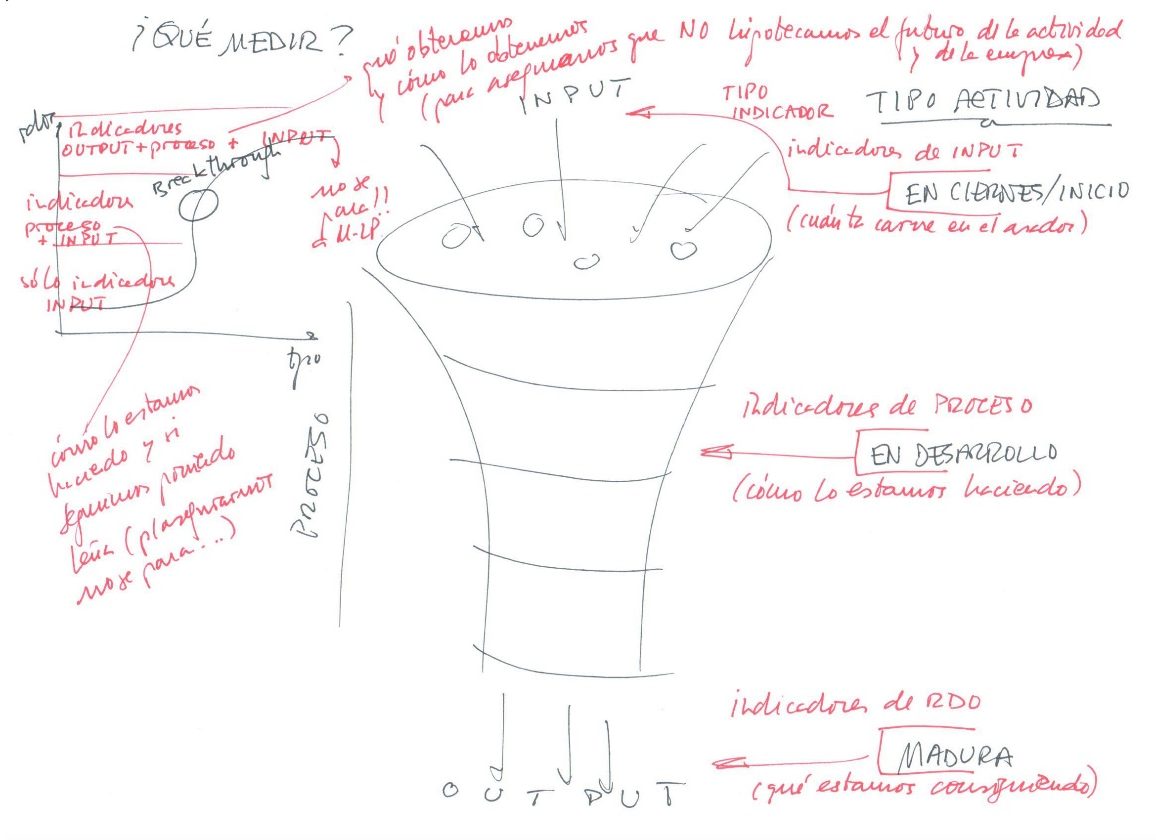 ¿QUÉ MEDIR?
qué obtenemos
y cómo lo obtenemos
(para asegurarnos que NO hipotecamos el futuro de la actividad
y de la empresa)
INPUT
TIPO
INDICADOR
TIPO ACTIVIDAD
rdos
indicadores
OUTPUT + proceso + INPUT
Breakthrough
no se
para!!
a M-LP
indicadores
proceso
+ INPUT
sólo indicadores
INPUT
tpo
indicadores de INPUT
EN CIERNES/INICIO
(cuánta carne en el asador)
cómo lo estamos
haciendo y si
seguimos poniendo
leña (p/asegurarnos
no se para...)
PROCESO
indicadores de PROCESO
EN DESARROLLO
(cómo lo estamos haciendo)
indicadores de RDO
MADURA
(qué estamos consiguiendo)
OUTPUT